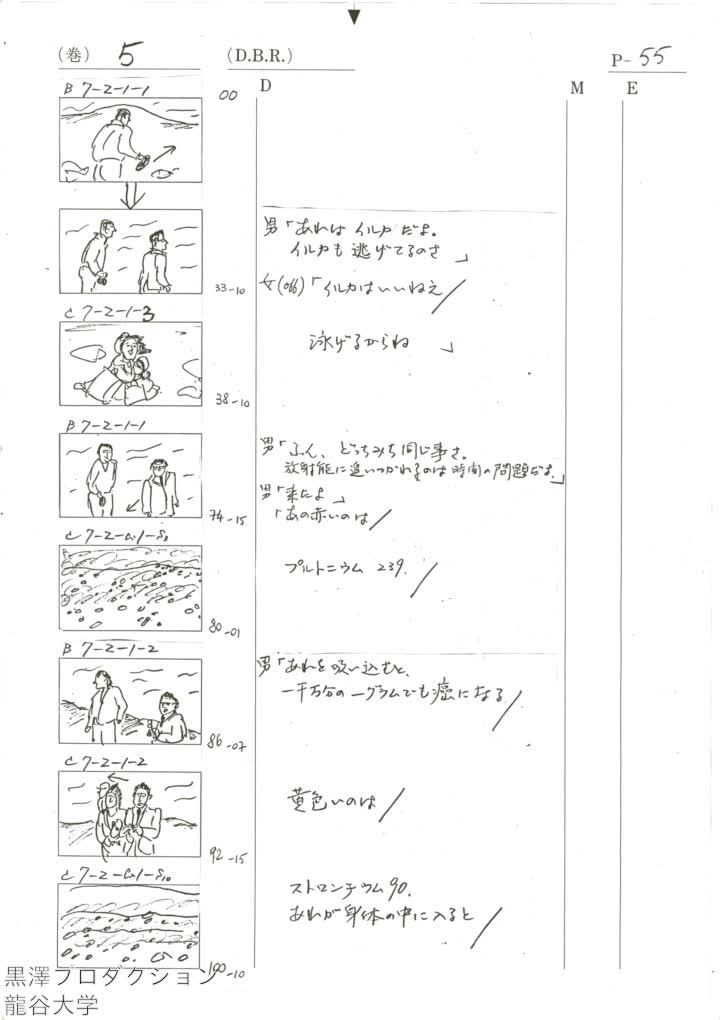 （巻） 5
（D.B.R.）
P- 55
D
M
E
B 7-2-1-1
00
男「あれは イルカ だよ。
イルカも 逃げてるのさ 」
33-10
女(off)「イルカはいいねえ/
C 7-2-1-3
泳げるからね 」
38-10
B 7-2-1-1
男「ふん、どっちみち同じ事さ。
放射能に追いつかれるのは時間の問題だよ。」
男「来たよ」
「あの赤いのは/
74-15
プルトニウム 239. /
80-01
B 7-2-1-2
男「あれを吸い込むと、
一千万分の一グラムでも癌になる/
86-07
C 7-2-1-2
黄色いのは/
92-15
ストロンチウム 90.
あれが身体の中に入ると/
100-10
黒澤プロダクション
龍谷大学